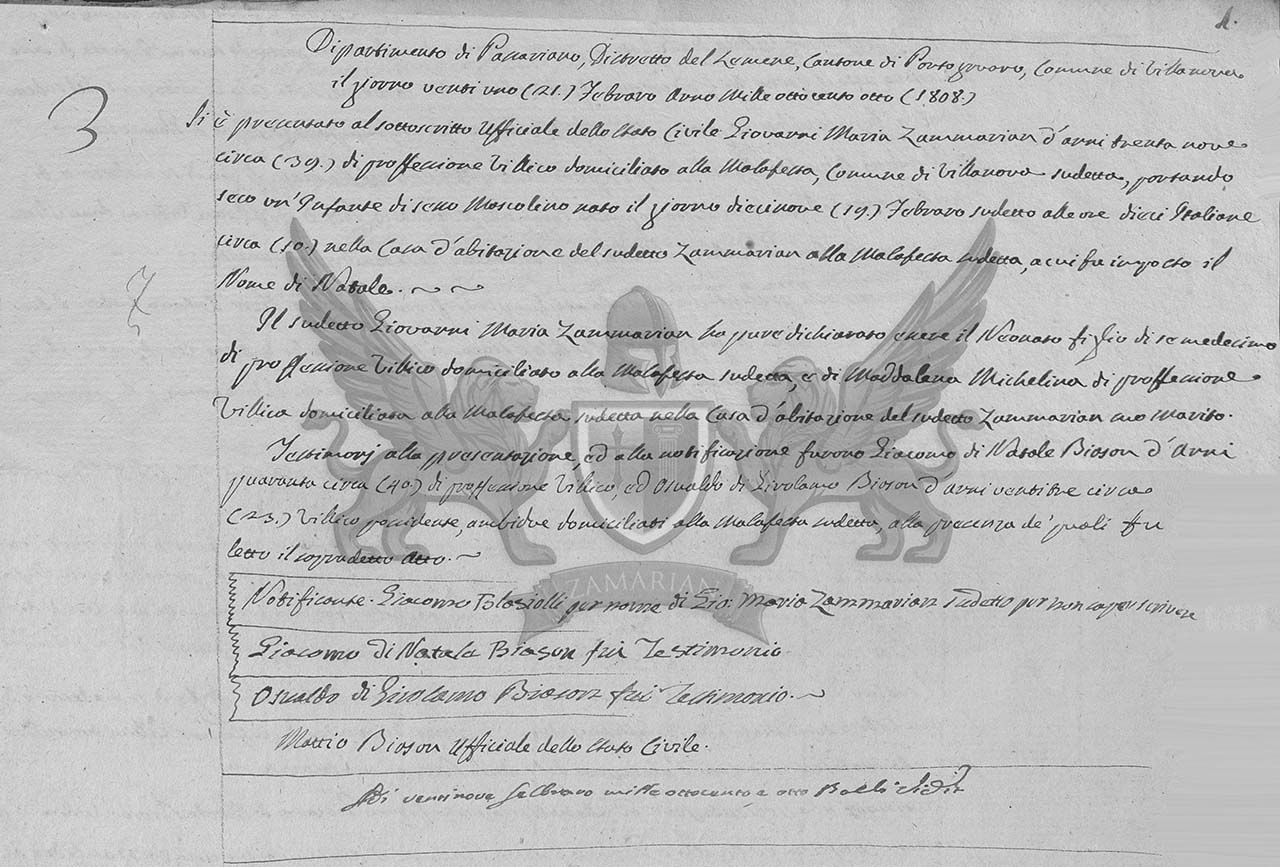 4.
Dipartimento di Passariano, Distretto del Lemene, Cantone di Portogruaro, Comune di Villanova
il giorno venti uno (21.) Febraro Anno Mille ottocento otto (1808.)
3
Si è presentato al sottoscritto Ufficiale dello Stato Civile Giovanni Maria Zammarian d'anni trenta nove
circa (39.) di proffessione Villico domiciliato alla Malafesta, Comune di Villanova sudetta, portando
seco un'Infante di sesso Moscolino nato il giorno diecinove (19.) Febraro sudetto alle ore dieci Italiane
circa (10.) nella Casa d'abitazione del sudetto Zammarian alla Malafesta sudetta, a cui fu imposto il
Nome di Natale.
7
Il sudetto Giovanni Maria Zammarian ha pure dichiarato essere il Neonato figlio di se medecimo
di proffessione Villico domiciliato alla Malafesta sudetta, e di Maddalena Michelina di proffessione
Villica domiciliata alla Malafesta sudetta nella Casa d'abitazione del sudetto Zammarian suo Marito.
Testimonj alla presentazione, ed alla notificazione furono Giacomo di Natale Biason d'Anni
quaranta circa (40.) di proffessione Villico, ed Osvaldo di Girolamo Biason d'anni ventitre circa
(23.) Villico possidente, ambidue domiciliati alla Malafesta sudetta, alla presenza de' quali fu
letto il sopradetto Atto.
ZAMARIAN
Notificante. Giacomo per nome di Gio: Maria Zammarian sudetto per non saper scrivere
Giacomo di Natale Biason fui Testimonio
Osvaldo di Girolamo Biason fui Testimonio.
Mattio Biason Ufficiale dello Stato Civile.
Adi ventinove Febraro mille ottocento e otto